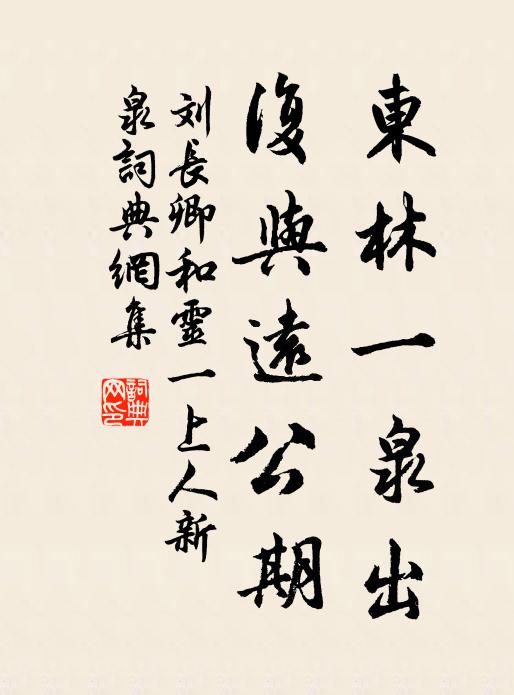 東林一泉出
復與遠公期
刘長卿和靈一上人新
泉詞典網集
詞典
网印